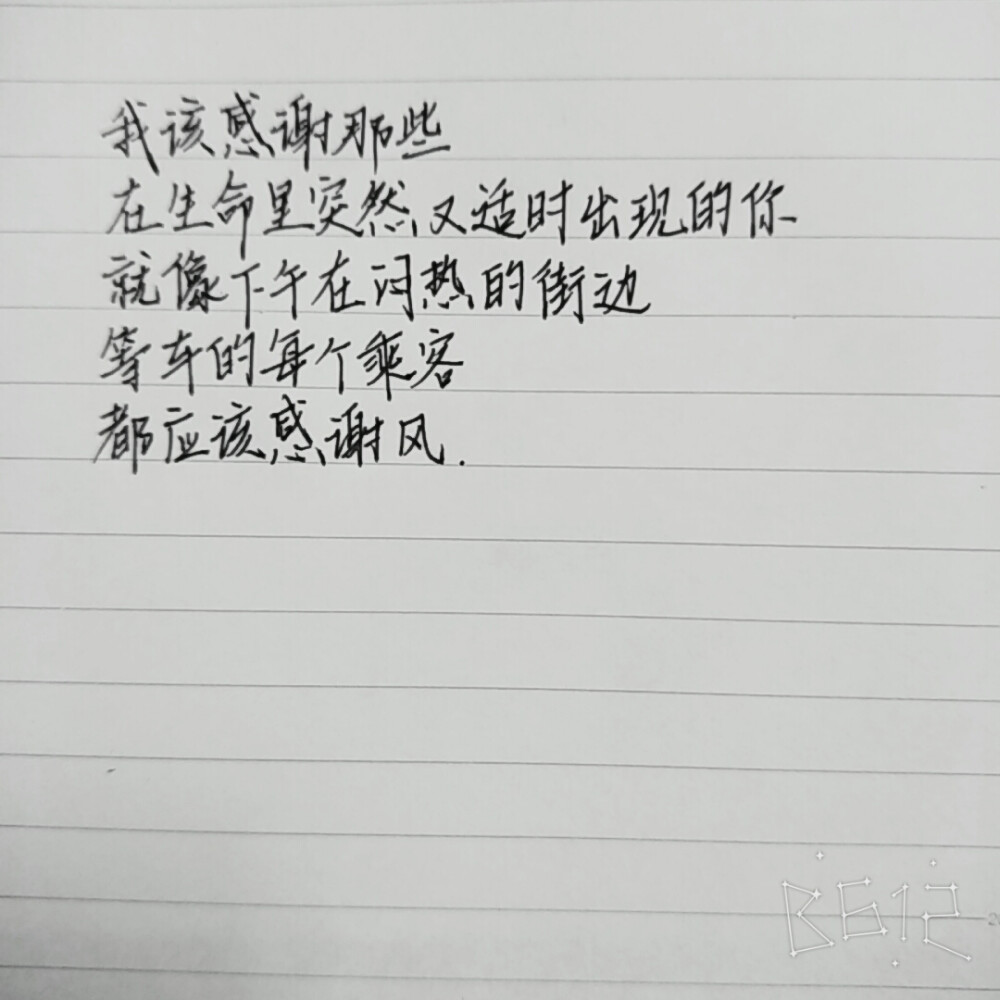 我该感谢那些
在生命里突然又适时出现的你
就像下午在闷热的街边
等车的每个乘客
都应该感谢风.
B612